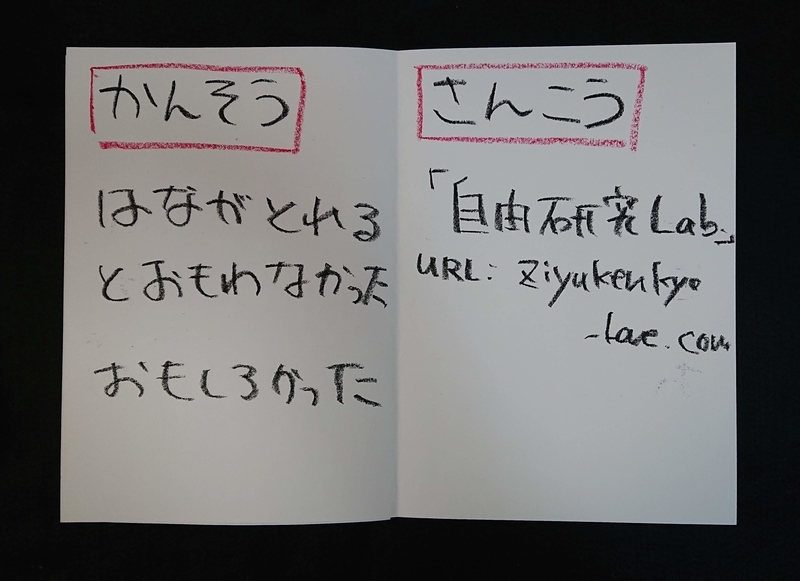 かんそう
はながとれる
とおもわなかった
おもしろかった
さんこう
「自由研究Lab.」
URL: ziyukenkyo
-lave.com